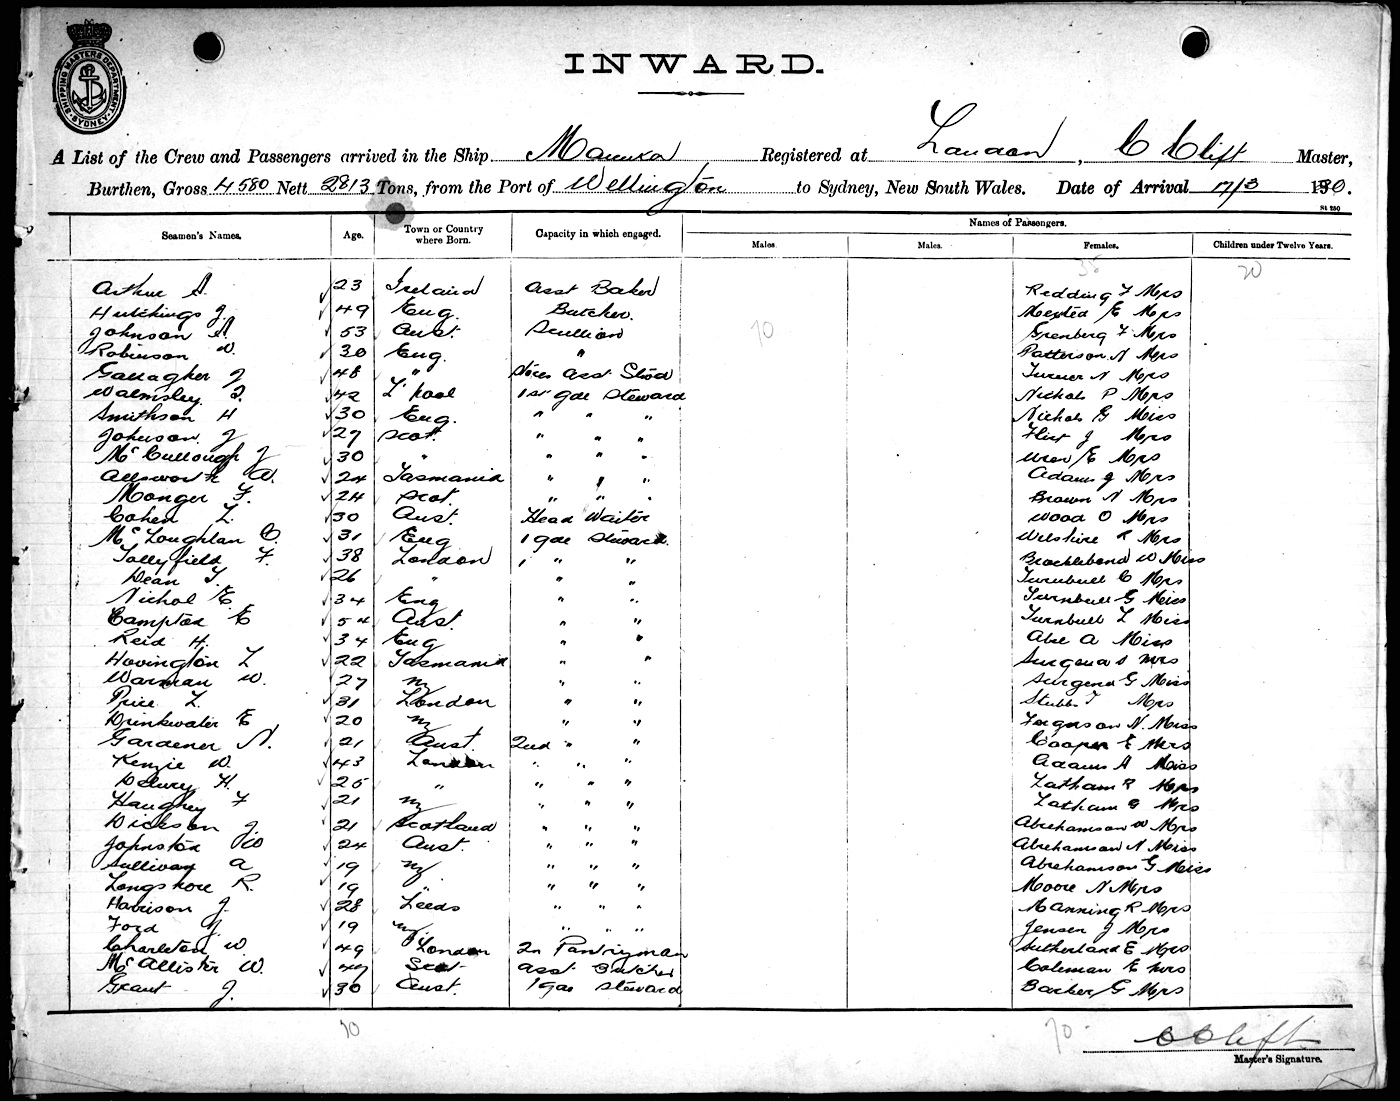 SHIPPING MASTERS DEPARTMENT SYDNEY
INWARD.
A List of the Crew and Passengers arrived in the Ship Manuka Registered at London, C Clift Master,
Burthen, Gross 4580 Nett 2813 Tons, from the Port of Wellington to Sydney, New South Wales. Date of Arrival 17/3
St 250
Names of Passengers.
Seamen's Names. Age. Town or Country where Born. Capacity in which engaged. Males. Males. Females. Children under Twelve Years.
35 20
Arthur A. 23 Ireland Asst Baker Redding F Mrs
Hutchings J. 49 Eng. Butcher. E Mrs
Johnson A 53 Aust. Scullion Grenberg F Mrs
70
Robinson W. 30 Eng. " Patterson N Mrs
Gallagher J 48 " Stores Asst Stwd Turner N Mrs
Walmsley J. 42 L'pool 1st gde Steward Nichols P Mrs
Smithson H 30 Eng. " " " Nichols G Miss
Johnson J 27 Scot. " " " J Mrs
McCullough J 30 " " " " E Mrs
Allsworth W. 24 Tasmania " " " Adams J Mrs
Monger F. 24 Scot " " " Brown N Mrs
Cohen L. 30 Aust. Head Waiter Wood O Mrs
McLoughlan C. 31 Eng 1 gde Steward. Wilshire R Mrs
Tollyfield F. 38 London " " " Brocklebond W Miss
Dean T. 26 " " " Turnbull C Mrs
Nichol E. 34 Eng " " Turnbull G Miss
Campton E 54 Aust. " " Turnbull L Miss
Reid H. 34 Eng " " Abe A Miss
Hovington L 22 Tasmania " " S Mrs
Warman W. 27 NZ " " G Miss
Price L. 31 London " " Stubbs T Mrs
Drinkwater E 20 NZ " " Ferguson N. Miss
Gardener N. 21 Aust. 2nd " " Cooper E Mrs
Kenzie W. 43 London " " " Adams A Miss
Delury H. 25 " " " " Latham R Mrs
Haughey F 21 NZ " " " Latham G Mrs
Dickson J. 21 Scotland " " " Abrahamson W Mrs
Johnston W 24 Aust. " " " Abrahamson N Miss
Sullivan A 19 NZ " " " Abrahamson G Miss
Longshore R. 19 " " " " Moore N Mrs
Harrison J. 28 Leeds " " " Manning R Mrs
Ford J. 19 NZ " " " Jensen J Mrs
Charleton W. 49 London 2n Pantryman Sutherland E Mrs
McAllister W. 47 Scot Asst Butcher Coleman E Mrs
Grant J. 30 Aust. 1 gde Steward Barker G Mrs
70 70
C Clift
Master's Signature.